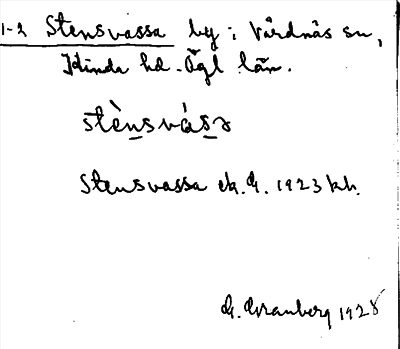 1-2 Stensvassa by i Vårdnäs sn,
Kinda hd. Ögl län.
stènsvásə
Stensvassa ek. G. 1923 kb.
G. Granberg 1928